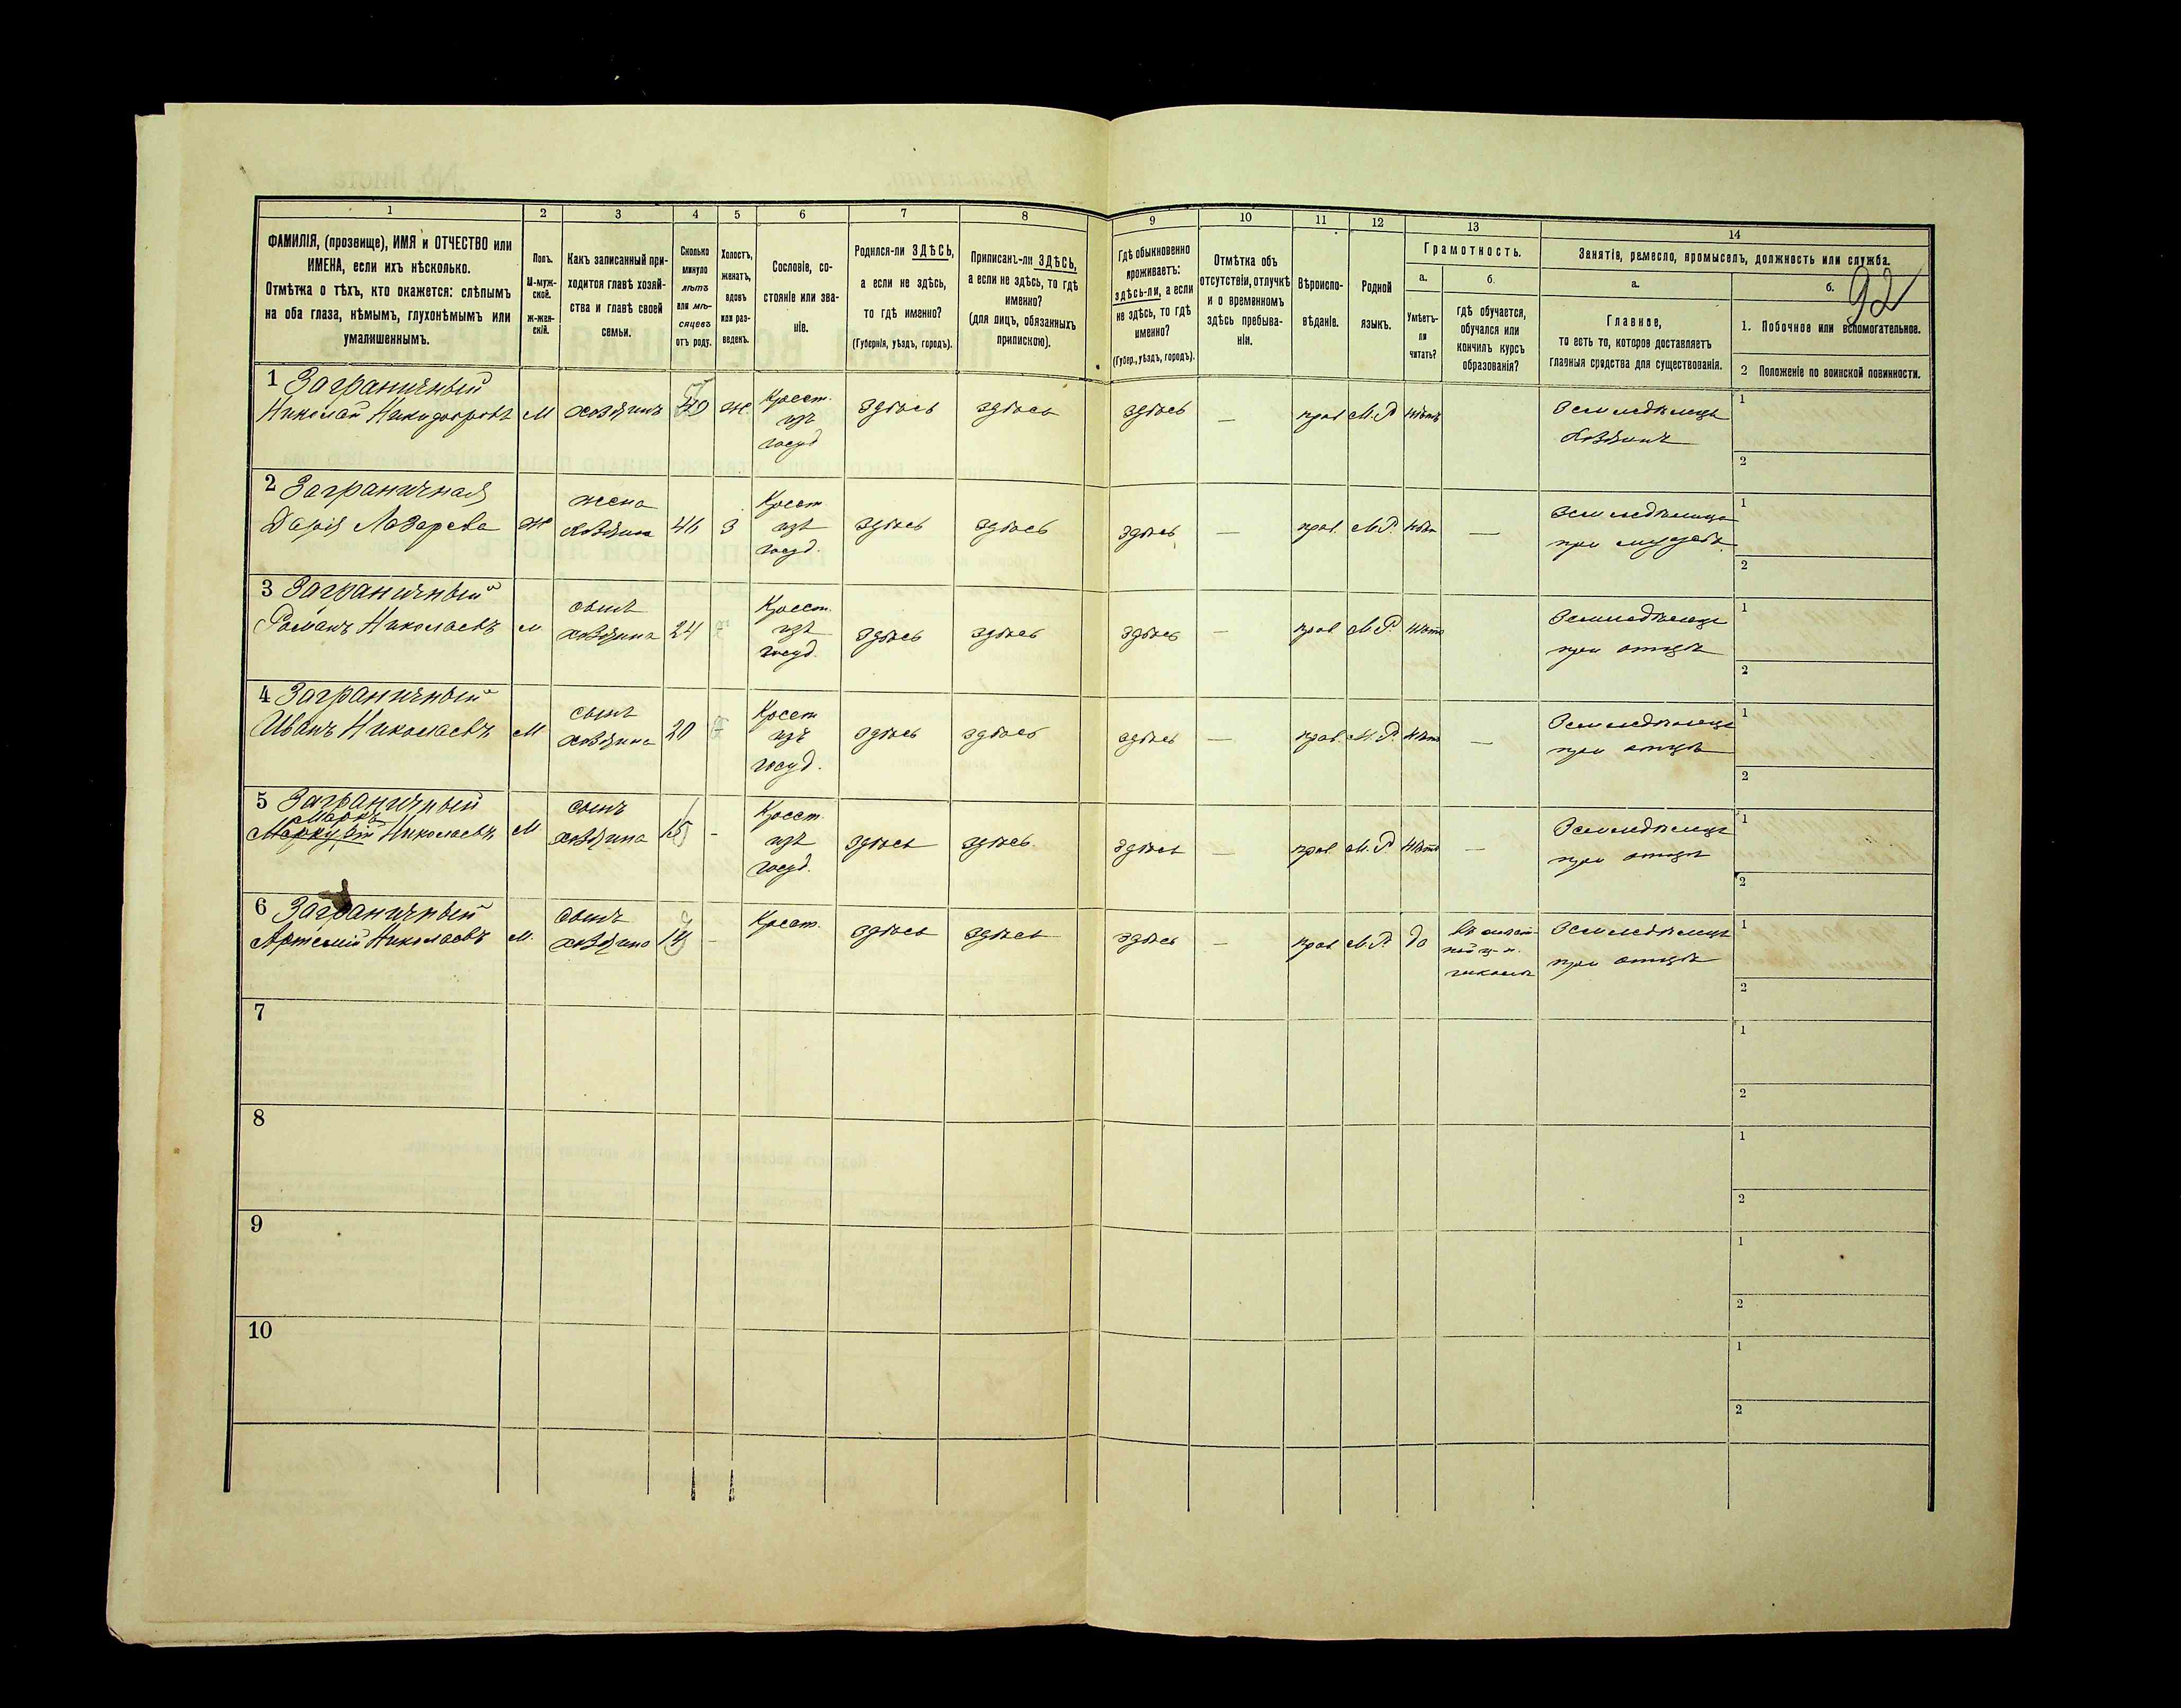 92
1 2 3 4 5 6 7 8 9 10 11 12 13 14
ФАМИЛІЯ, (прозвище), ИМЯ и ОТЧЕСТВО или
ИМЕНА, если ихъ нѣсколько.
Отмѣтка о тѣхъ, кто окажется: слѣпымъ
на оба глаза, нѣмымъ, глухонѣмымъ или
умалишеннымъ.
Полъ.
М-муж-
ской.
Ж-жен-
скій.
Какъ записанный при-
ходится главѣ хозяй-
ства и главѣ своей
семьи.
Сколько
минуло
лѣтъ
или мѣ-
сяцевъ
отъ роду.
Холостъ,
женатъ,
вдовъ
или раз-
веденъ.
Сословіе, со-
стояніе или зва-
ніе.
Родился-ли ЗДѢСЬ,
а если не здѣсь,
то гдѣ именно?
(Губернія, уѣздъ, городъ).
Приписанъ-ли ЗДѢСЬ,
а если не здѣсь, то гдѣ
именно?
(для лицъ, обязанныхъ
припискою).
Гдѣ обыкновенно
проживаетъ:
здѣсь-ли, а если
не здѣсь, то гдѣ
именно?
(Губер., уѣздъ, городъ).
Отмѣтка объ
отсутствіи, отлучкѣ
и о временномъ
здѣсь пребыва-
ніи.
Вѣроиспо-
вѣданіе.
Родной
языкъ.
Грамотность.
а.
Умѣетъ-
ли
читать?
б.
гдѣ обучается,
обучался или
кончилъ курсъ
образованія?
Занятія, ремесло, промыселъ, должность или служба.
а.
Главное,
то есть то, которое доставляетъ
главныя средства для существованія.
б.
1. Побочное или вспомогательное.
2 Положеніе по воинской повинности.
1 Заграничный
Николай Никифоровъ М хозяинъ ж Крест.
изъ
госуд
здѣсь здѣсь здѣсь — прав М.Р нѣтъ
Земледѣлецъ
хозяинъ
1
2
2 Заграничная
Дарія Лазарева ж
жена
хозяина
46 з
Крест
изъ
госуд.
здѣсь здѣсь здѣсь — прав. М.Р. нѣтъ —
земледѣлица
при мужѣ
1
2
3 Заграничный
Романъ Николаевъ м
сынъ
хозяина
24
Крест.
изъ
госуд.
здѣсь здѣсь здѣсь — прав М.Р. нѣтъ
Земледѣлецъ
при отцѣ
1
2
4 Заграничный
Иванъ Николаевъ М
сынъ
хозяина
20
Крест
изъ
госуд.
здѣсь здѣсь здѣсь — прав. М.Р. нѣтъ —
Земледѣлецъ
при отцѣ
1
2
5 Заграничный
Маркъ
Николаевъ М
сынъ
хозяина
15 -
Крест.
изъ
госуд.
здѣсь здѣсь здѣсь — прав. М.Р. нѣтъ —
Земледѣлецъ
при отцѣ
1
2
6 Заграничный
Артемій Николаевъ М.
сынъ
хозяина
-
Крест.
здѣсь здѣсь здѣсь — прав М.Р. да
Земледѣлецъ
при отцѣ
1
2
7
1
2
8
1
2
9
1
2
10
1
2